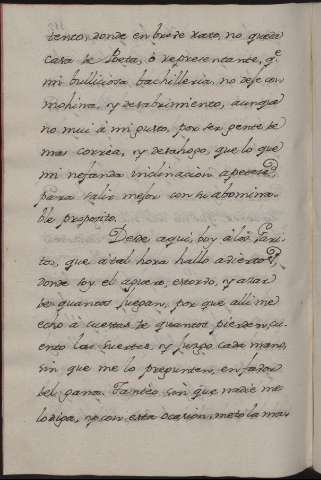 tento, donde en brebe rato, no queda
casa de Poeta, ò representante, q.e
mi bulliciosa bachilleria, no deje con
mohina, y desabrimiento, aunque
no mui à mi gusto, por ser gente de
mas correa, y desahogo, que lo que
mi nefanda inclinacion apetece,
para salir mejor con su abomina-
ble proposito.
Desde aqui, boy à los Gari-
tos, que à tal hora hallo abiertos,
donde soy el aguero, estorbo, y azar
de quantos juegan, por que alli me
echo à cuestas de quantos pierden, cu-
ento las suertes, y juzgo cada mano,
sin que me lo pregunten, en fador
del gana. Tanteo sin que nadie me
lo diga, y con esta ocasion, meto la ma-